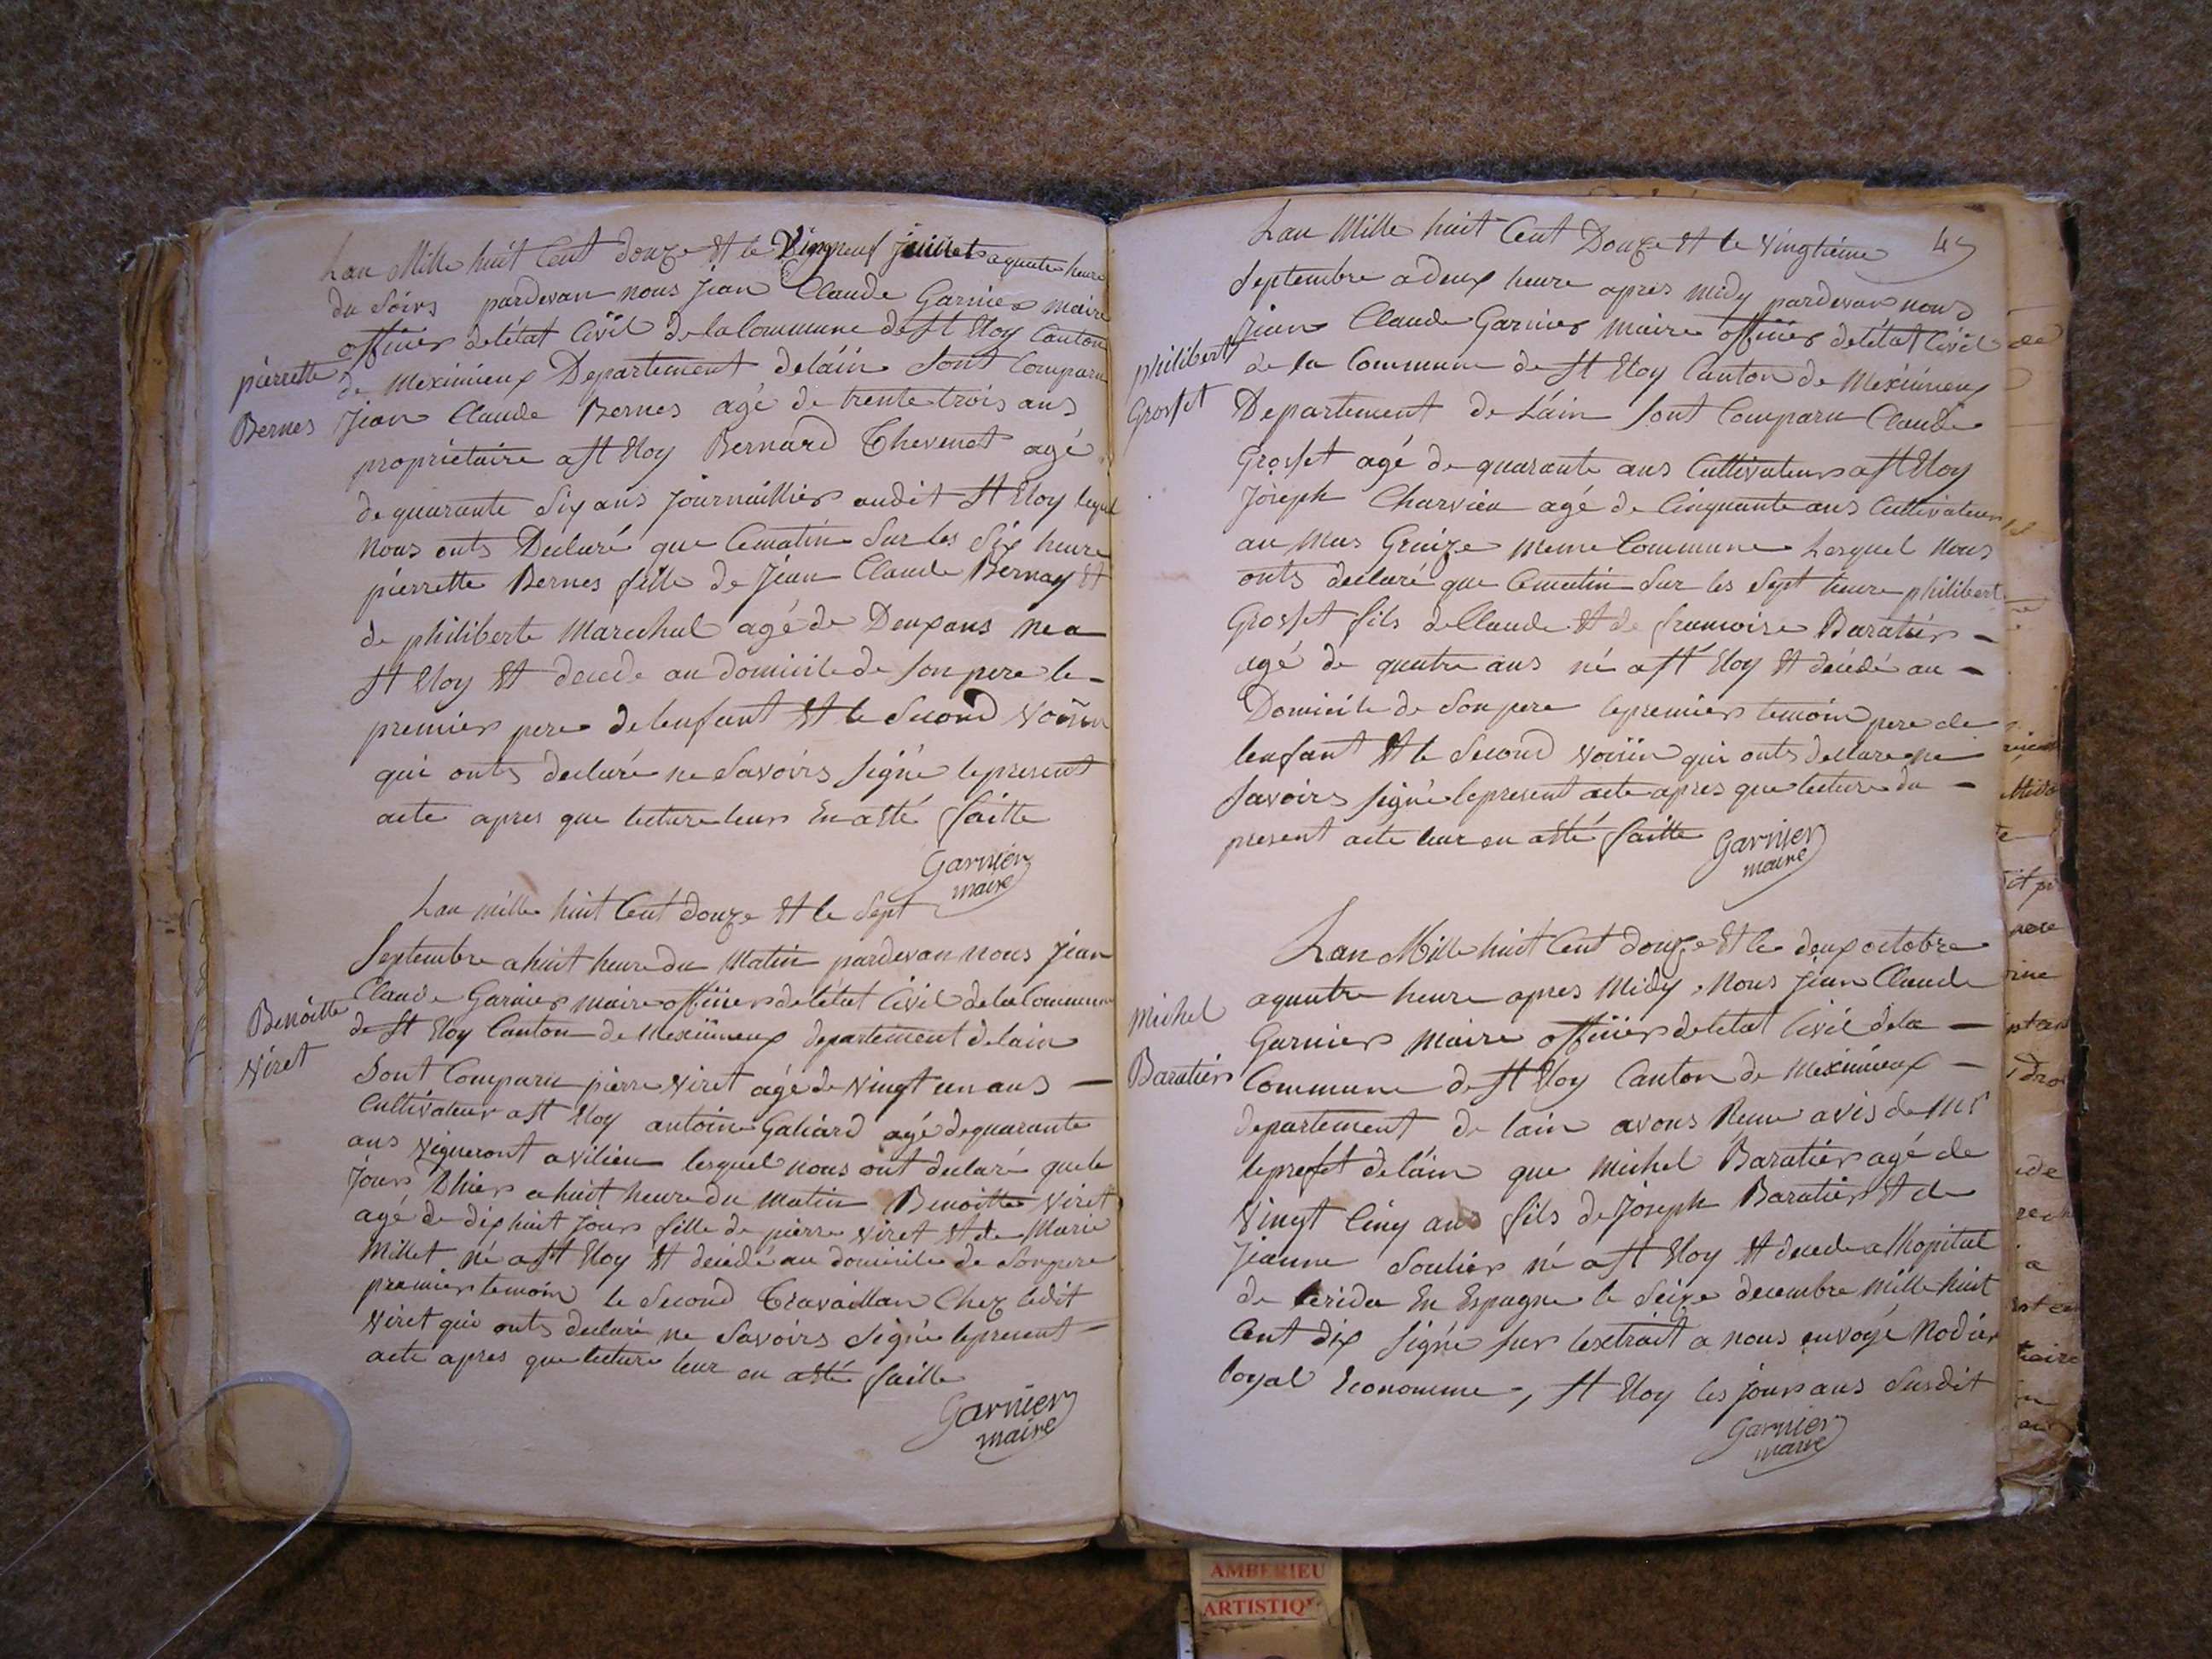 Lan Mille huit Cent douze et le Vingneuf juillet a quatre heure
du Soirs pardevan nous jean Claude Garnier maire
officier deletat Civil de la Commune de St Eloy Canton
de Meximieux Departement delain Sont Comparu
pierrette
Bernes
Jean Claude Bernes agé de trente trois ans
proprietaire a St Eloy Bernard Thevenet agé
de quarante Six ans journaillier audit St Eloy lequel
Nous onts Declaré que Cematin Sur les Six heure
pierrette Bernes fille de Jean Claude Bernay et
de philiberte Marechal agé de Deux ans ne a
St Eloy et decede au domicile de Son pere le
premier pere delenfant et le Second Voisin
qui onts declaré ne Savoirs Signé lepresent
acte apres que lecture leur En a eté faitte
Garnier
maire
Lan mille huit Cent douze et le Sept
Septembre a huit heure du Matin pardevan nous jean
Claude Garnier maire officier deletat Civil de la Commune
de St Eloy Canton de Meximieux departement delain
Benoitte
Viret
Sont Comparu pierre Viret agé de Vingt un ans
Cultivateur a St Eloy antoine Galiard agé de quarante
ans Vigneront a vilieu lesquel nous ont declaré que le
jour Dhier a huit heure du Matin Benoitte Viret
agé de dix huit jour fille de pierre Viret et de Marie
Millet né a St Eloy et decédé au domicile de Son pere
premier temoin le Second Travaillan Chez ledit
Viret qui onts declaré ne Savoirs Signé lepresent
acte apres que lecture leur en a eté faitte
Garnier
maire
45
Lan Mille huit Cent Douze et le Vingtième
Septembre a deux heure apres midy pardevan nous
Jean Claude Garnier Maire officier deletat Civil
de la Commune de St Eloy Canton de Meximieux
philibert
Grosset
Departement de Lain Sont Comparu Claude
Grosset agé de quarante ans Cultivateur a St Eloy
Joseph Charvieu agé de Cinquante ans Cultivateur
au Mas Grinze meme Commune Lesquel Nous
onts declaré que Cematin Sur les Sept heure philibert
Grosset fils de Claude et de francoise Baratier
agé de quatre ans né a St Eloy et decédé au
Domicile de Son pere lepremier temoin pere de
lenfant et le Second Voisin qui onts declare ne
Savoirs Signé lepresent acte apres que lecture du
present acte leur en a eté faitte
Garnier
maire
Lan Mille huit Cent douze et le deux octobre
a quatre heure apres Midy, Nous Jean Claude
Garnier Maire officier deletat Civil dela
Michel
Baratier
Commune de St Eloy Canton de Meximieux
departement de lain avons Recu avis de Mr
leprefet delain que Michel Baratier agé de
Vingt Cinq ans fils de Joseph Baratier et de
Jeanne Soulier né a St Eloy et decede a lhopital
de Lerida En Espagne le Seize decembre Mille huit
Cent dix Signé Sur lextrait a nous envoyé Nodier
loyal Economme, St Eloy les jour ans Susdit
Garnier
maire
AMBERIEU
ARTISTIQU